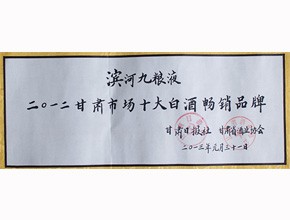 滨河九粮液
二〇一二甘肃市场十大白酒畅销品牌
甘肃日报社 甘肃省酒业协会
二〇一三年元月三十一日